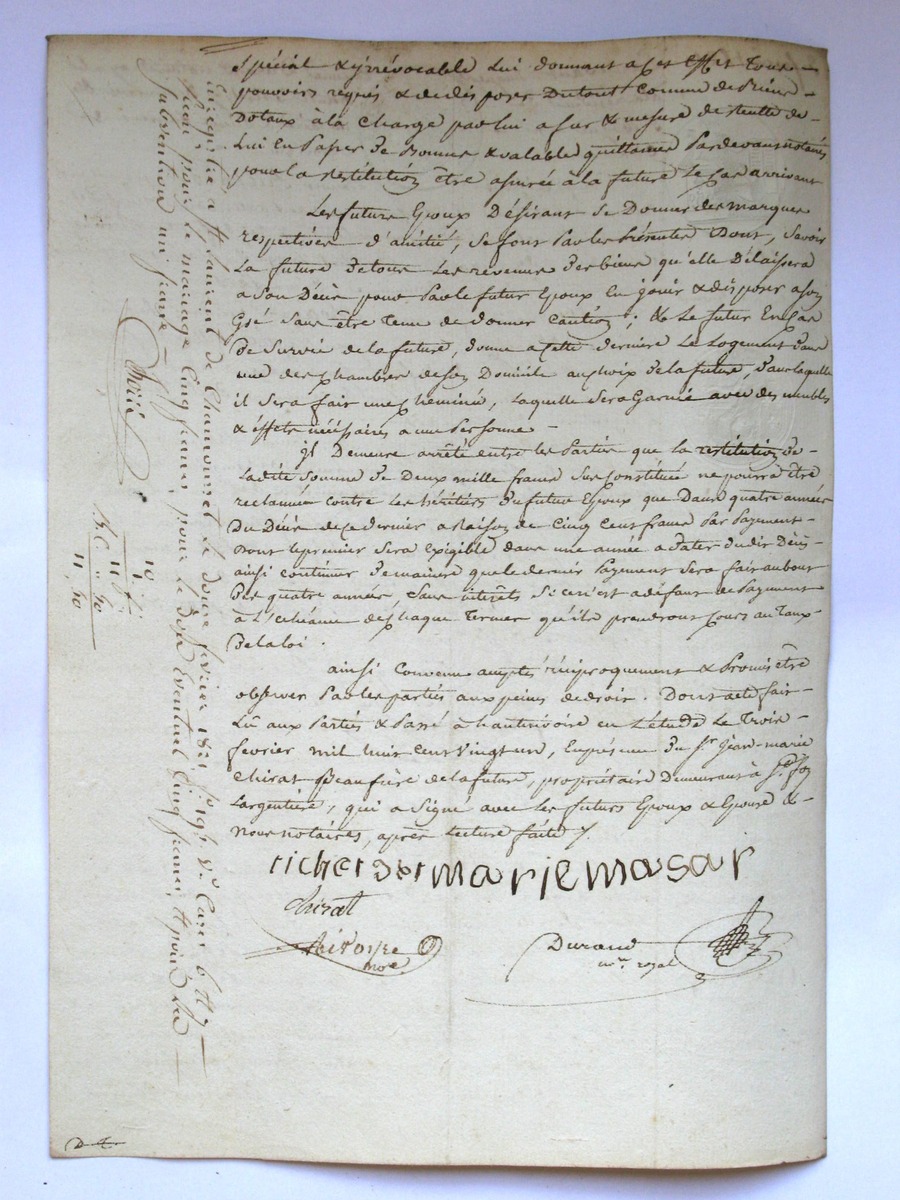 spécial & yrrévocable Lui donnant a cet effet Tous
pouvoirs requis & de disposer Dutout Comme de Biens
Dotaux à la Charge par lui a fur & mesure de Recette de
Lui En Passer De Bonnes & valable quittance Pardevant notaires
pour la Restitution être assurée à la future Le Cas arrivant
Les future Epoux Désirant Se Donner des marques
respectives d'amitié, Se font Par les Présentes Dont, Savoir
La future De tous Les revenus Des biens qu'elle Délaissera
a Son Décès pour Par le futur Epoux En jouir & disposer a Son
Gré Sans être Tenu de donner Caution ; & Le futur En Cas
De Survie de la future, donne a Cette dernière Le Logement Dans
une des Chambres de Son Domicile au choix De la future, Dans laquelle
il Sera fait une Cheminée, Laquelle Sera Garnie avec des meubles
& Effets nécessaires a une Personne
Il Demeure arrêté entre les Parties que la restitution De
Ladite Somme De Deux mille francs Sus Constituée ne pourra être
reclamée Contre Les héritiers Du futur Epoux que Dans quatre années
Du Décès de Ce dernier a Raison de Cinq Cent francs Par Payement
Dont le premier Sera Exigible dans une année a Dater dudit Décès
ainsi Continuer De maniere que le dernier Payement Sera fait au bout
Des quatre années, Sans intérêts Si ce n'est a défaut de Payement
à L'Echéance de Chaque Termes qu'ils prendront Cours au Taux
De la loi.
ainsi Convenu accepté réciproquement & Promis être
observer Par les parties aux peines de droit. Dont acte fait
Lû aux Parties & Passé à hauterivoire en L'étude Le Trois
fevrier mil huit Cent Vingt un, En présence Du Sr Jean-marie
Chirat Beaufrère de la future, propriétaire Demeurant à Ste Foy
Largentière, qui a Signé avec les futurs Epoux & Epouse &
Nous notaires, après Lecture faite
richerder marie masar
Chirat
nore
Durand
nore royal
Enregistré a St Laurent de Chamousset le douze fevrier 1821
Reçu pour le mariage Cinq francs, pour le Don Eventuel Cinq francs, & pour la
Subvention un franc
10 f
1
11 f
" 90
11, 90